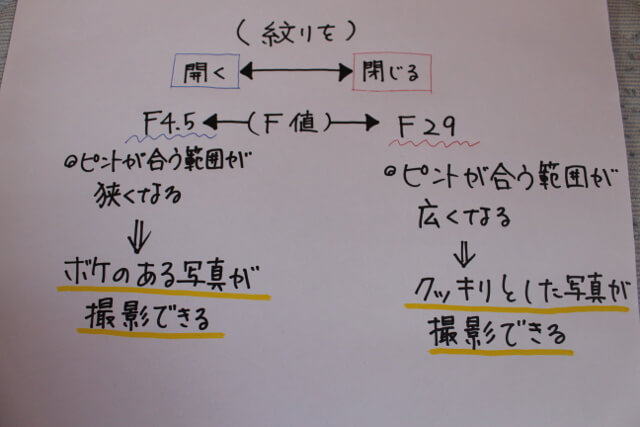 (絞りを)
開く ↔ 閉じる
F4.5 ← (F値) → F29
⊙ピントが合う範囲が
狭くなる
⇓
ボケのある写真が
撮影できる
⊙ピントが合う範囲が
広くなる
⇓
クッキリとした写真が
撮影できる